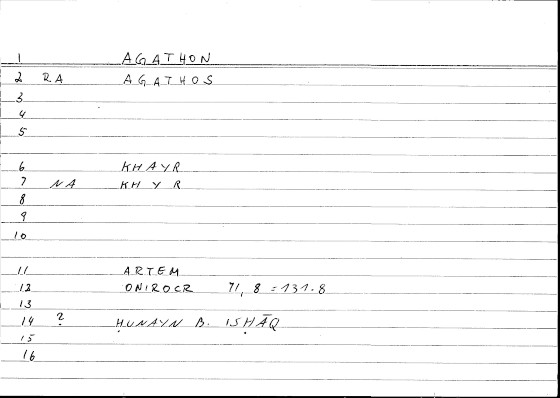 1 AGATHON
2 RA AGATHOS
3
4
5
6 KHAYR
7 NA KH Y R
8
9
10
11 ARTEM
12 ONIROCR 71, 8 = 131.8
13
14 ? ḤUNAYN B. ISḤĀQ
15
16